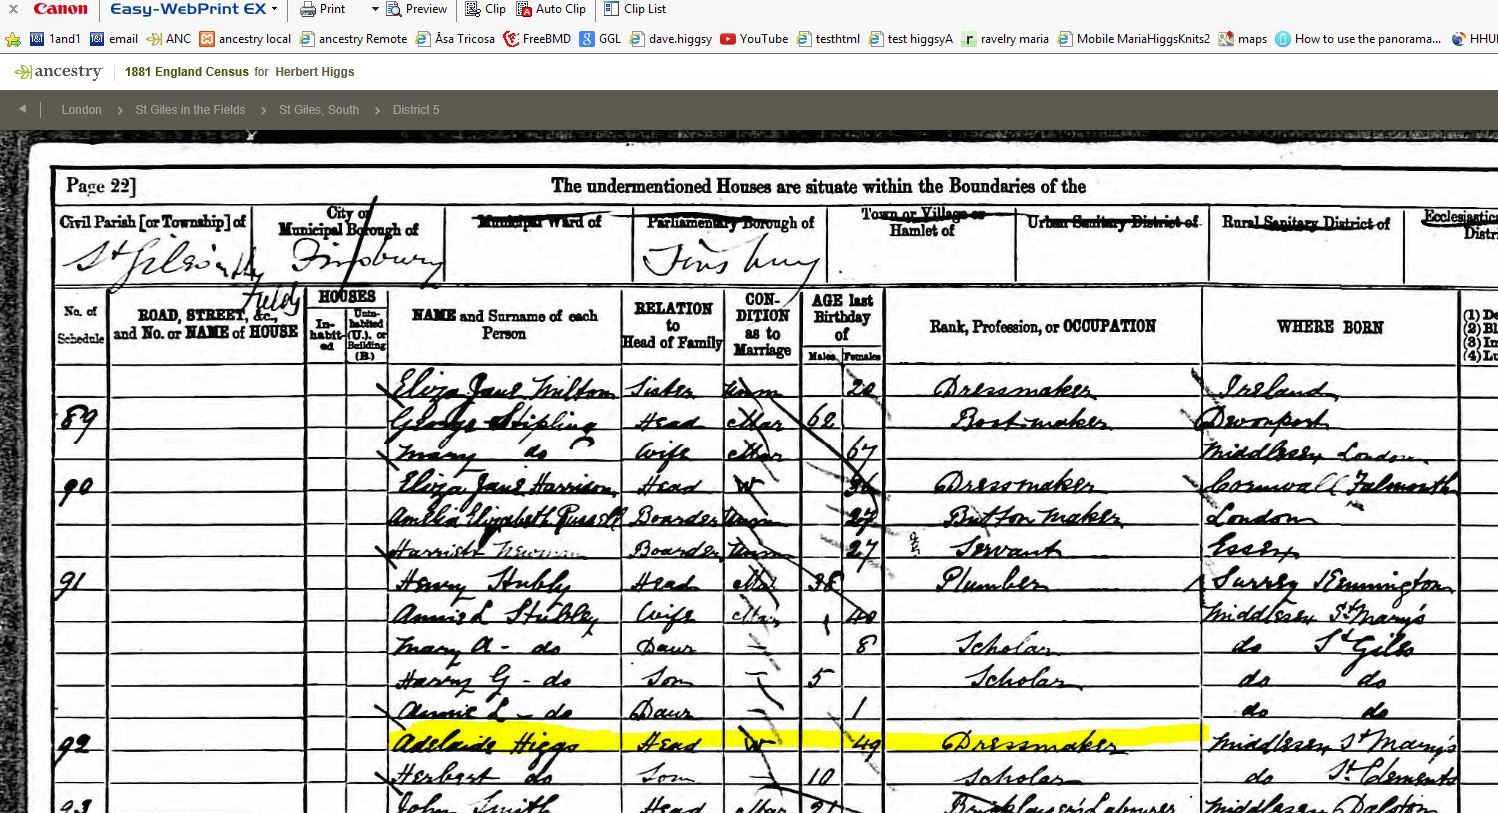 x Canon Easy-WebPrint EX Print Preview Clip Auto Clip Clip List
1and1 email ANC ancestry local ancestry Remote Åsa Tricosa FreeBMD GGL dave.higgsy YouTube testhtml test higgsyA ravelry maria Mobile MariaHiggsKnits2 maps How to use the panorama... HHU
ancestry 1881 England Census for Herbert Higgs
London > St Giles in the Fields > St Giles, South > District 5
Page 22] The undermentioned Houses are situate within the Boundaries of the
Civil Parish [or Township] of City or Municipal Borough of Municipal Ward of Parliamentary Borough of Town or Village or Hamlet of Urban Sanitary District of Rural Sanitary District of Ecclesiastic Distri
St Giles in the Fields Finsbury Finsbury
No. of Schedule ROAD, STREET, &c., and No. or NAME of HOUSE HOUSES In-habit-ed Unin-habited (U.), or Building (B.) NAME and Surname of each Person RELATION to Head of Family CON-DITION as to Marriage AGE last Birthday of Males Females Rank, Profession, or OCCUPATION WHERE BORN (1) De (2) Bl (3) Im (4) Lu
Eliza Jane Milton Sister Unm 20 Dressmaker Ireland
89 George Stipling Head Mar 62 Bootmaker Devonport
Mary do Wife Mar 67 Middlesex London
90 Eliza Jane Harrison Head W 36 Dressmaker Cornwall Falmouth
Amelia Elizabeth Russell Boarder Unm 27 Button Maker London
Harriet Newman Boarder Unm 27 Servant Essex
91 Henry Stubly Head Mar 38 Plumber Surrey Kennington
Annie L Stubley Wife Mar 40 Middlesex St Mary's
Mary A - do Daur 8 Scholar do St Giles
Harry G - do Son 5 Scholar do do
Annie L - do Daur 1 do do
92 Adelaide Higgs Head W 49 Dressmaker Middlesex St Mary's
Herbert do Son 10 Scholar do St Clements
93 John Smith Head Mar 21 Bricklayer's Labourer Middlesex Dalston